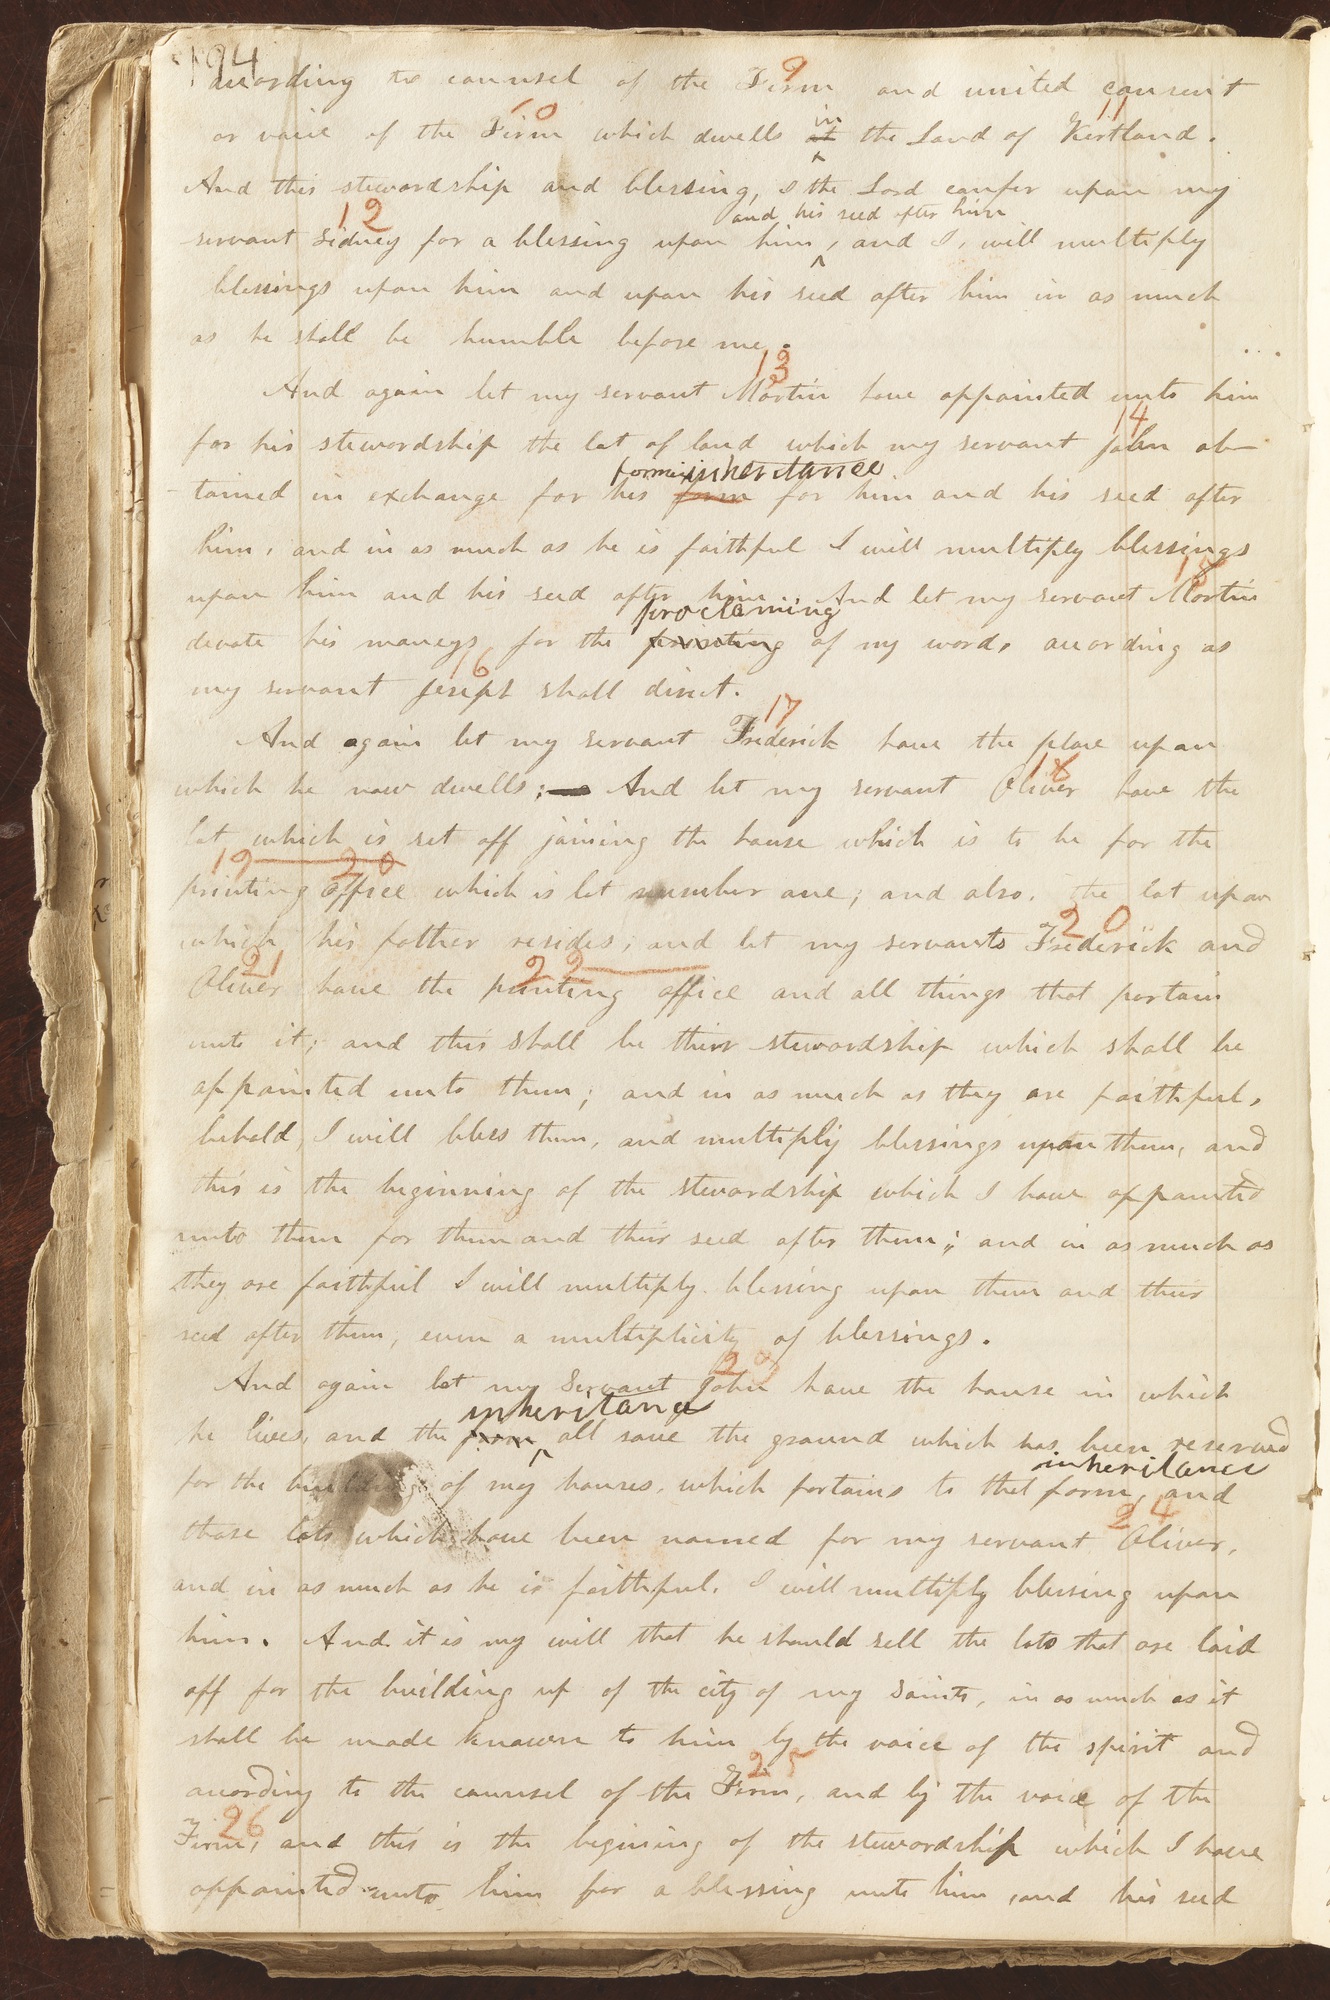 194
9
according to counsel of the Firm and united consent
10 11
or voice of the Firm which dwells at in the Land of Kirtland.
And this stewardship and blessing, I the Lord confer upon my
12 and his seed after him
servant Sidney for a blessing upon him, and I, will multiply
blessings upon him and upon his seed after him in as much
as he shall be humble before me.
13
And again let my servant Martin have appointed unto him
14
for his stewardship the lot of land which my servant John ob-
former inheritance
tained in exchange for his farm for him and his seed after
him, and in as much as he is faithful I will multiply blessings
15
upon him and his seed after him. And let my servant Martin
proclaming
devote his moneys for the printing of my words according as
16
my servant Joseph shall direct.
17
And again let my servant Frederick have the place upon
18
which he now dwells; And let my servant Oliver have the
lot which is set off joining the house which is to be for the
19 20
printing office which is lot number one; and also, the lot upon
20
which his father resides, and let my servants Frederick and
21 22
Oliver have the printing office and all things that pertain
unto it; and this shall be their stewardship which shall be
appointed unto them; and in as much as they are faithful,
behold, I will bless them, and multiply blessings upon them, and
this is the beginning of the stewardship which I have appointed
unto them for them and their seed after them; and in as much as
they are faithful I will multiply blessing upon them and their
seed after them, even a multiplicity of blessings.
23
And again let my servant John have the house in which
inheritance
he lives, and the farm all save the ground which has been reserved
inheritance
for the building of my houses, which pertains to that farm, and
24
those lots which have been named for my servant Oliver,
and in as much as he is faithful. I will multiply blessing upon
him. And it is my will that he should sell the lots that are laid
off for the building up of the city of my saints, in as much as it
shall be made known to him by the voice of the spirit and
25
according to the counsel of the Firm, and by the voice of the
26
Firm, and this is the begining of the stewardship which I have
appointed unto him for a blessing unto him, and his seed